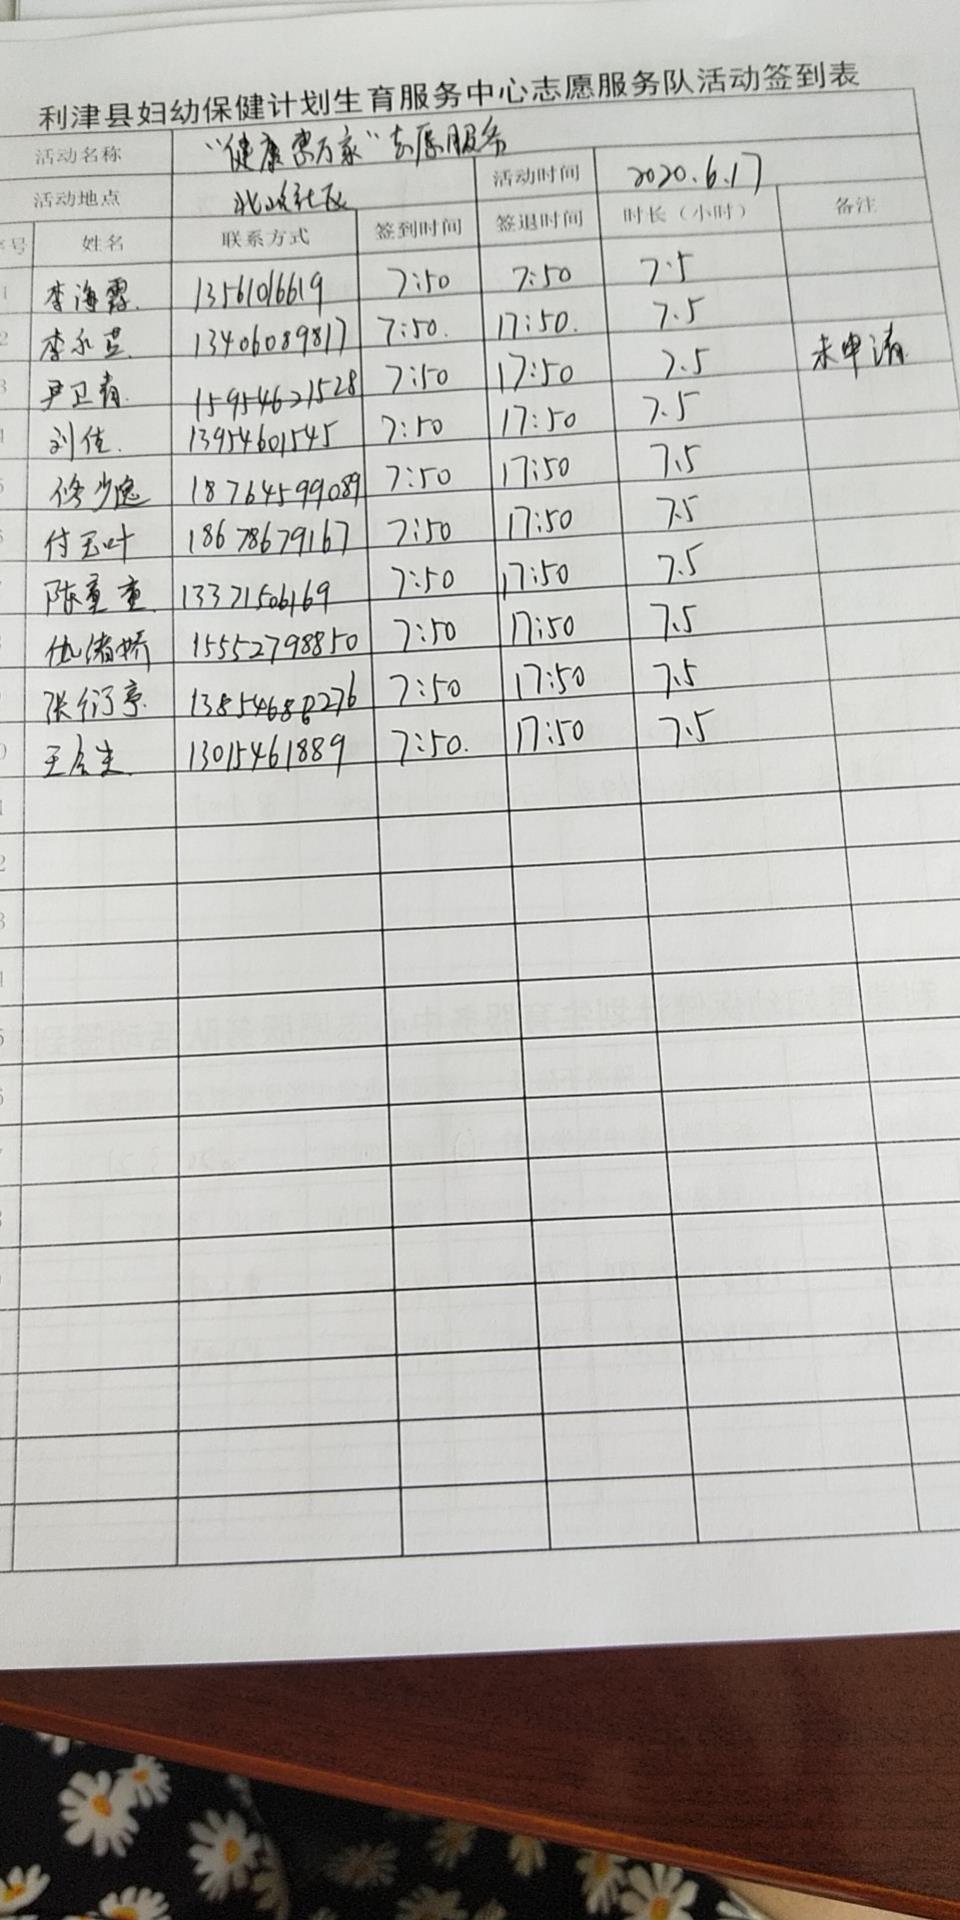 利津县妇幼保健计划生育服务中心志愿服务队活动签到表
活动名称 "健康惠万家"志愿服务
活动地点 北岭社区 活动时间 2020.6.17
序号 姓名 联系方式 签到时间 签退时间 时长（小时） 备注
1 李海霞 1356106619 7:50 7:50 7.5
2 李永芸 13406089817 7:50. 17:50. 7.5
3 尹卫青 15954621528 7:50 17:50 7.5 未申请
4 刘佳 13954601545 7:50 17:50 7.5
5 佟少逸 18764599089 7:50 17:50 7.5
付玉叶 18678679167 7:50 17:50 7.5
陈童童 13371506169 7:50 17:50 7.5
仇绪娇 15552798850 7:50 17:50 7.5
张衍亭 7:50 17:50 7.5
0 13015461889 7:50. 17:50 7.5
1
2
3
4
5